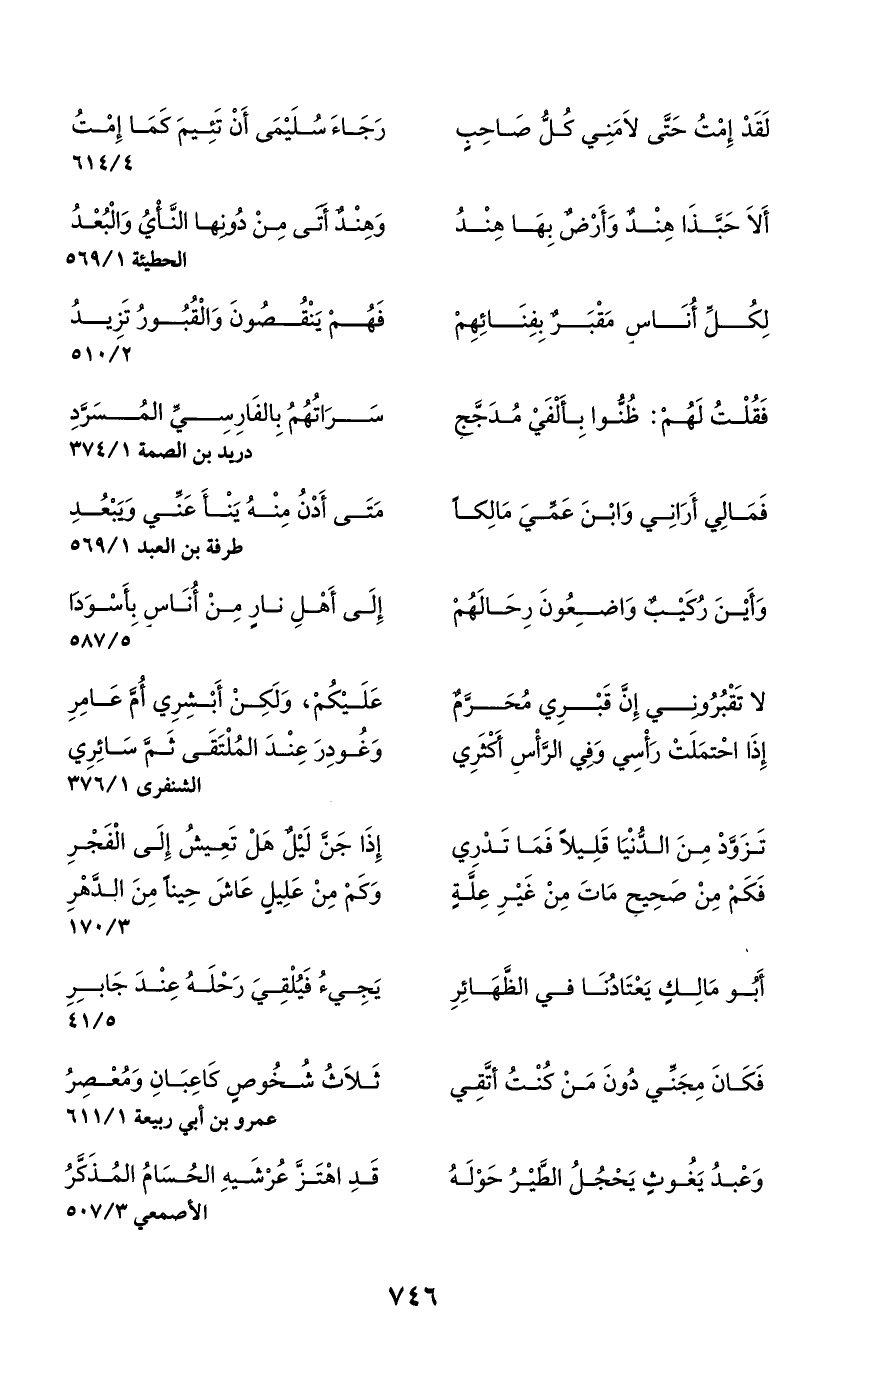 لَقَدْ إِمْتُ حَتَّى لاَمَنِي كُلُّ صَاحِبٍ رَجَاءَ سُلَيْمَى أَنْ تَئِيمَ كَمَا إِمْتُ
٦١٤/٤
أَلاَ حَبَّذَا هِنْدٌ وَأَرْضٌ بِهَا هِنْدُ وَهِنْدٌ أَتَى مِنْ دُونِها النَّأْيُ وَالْبُعْدُ
الحطيئة ٥٦٩/١
لِكُلِّ أُنَاسٍ مَقْبَرٌ بِفِنَائِهِمْ فَهُمْ يَنْقُصُونَ وَالْقُبُورُ تَزِيدُ
٥١٠/٢
فَقُلْتُ لَهُمْ: ظُنُّوا بِأَلْفَيْ مُدَجَّجٍ سَرَاتُهُمُ بِالفَارِسِيِّ المُسَرَّدِ
دريد بن الصمة ٣٧٤/١
فَمَالِي أَرَانِي وَابْنَ عَمِّيَ مَالِكاً مَتَى أَدْنُ مِنْهُ يَنْأَ عَنِّي وَيَبْعُدِ
طرفة بن العبد ٥٦٩/١
وَأَيْنَ رُكَيْبٌ وَاضِعُونَ رِحَالَهُمْ إِلَى أَهْلِ نارٍ مِنْ أُنَاسٍ بِأَسْوَدَا
٥٨٧/٥
لا تَقْبُرُونِي إِنَّ قَبْرِي مُحَرَّمٌ عَلَيْكُمْ، وَلَكِنْ أَبْشِرِي أُمَّ عَامِرِ
إِذَا احْتمَلَتْ رَأْسِي وَفِي الرَّأْسِ أَكْثَرِي وَغُودِرَ عِنْدَ المُلْتَقَى ثَمَّ سَائِرِي
الشنفرى ٣٧٦/١
تَزَوَّدْ مِنَ الدُّنْيَا قَلِيلاً فَمَا تَدْرِي إِذَا جَنَّ لَيْلٌ هَلْ تَعِيشُ إِلَى الْفَجْرِ
فَكَمْ مِنْ صَحِيحٍ مَاتَ مِنْ غَيْرِ عِلَّةٍ وَكَمْ مِنْ عَلِيلٍ عَاشَ حِيناً مِنَ الدَّهْرِ
١٧٠/٣
أَبُو مَالِكٍ يَعْتَادُنَا في الظَّهَائِرِ يَجِيءُ فَيُلْقِيَ رَحْلَهُ عِنْدَ جَابِرِ
٤١/٥
فَكَانَ مِجَنِّي دُونَ مَنْ كُنْتُ أَتَّقِي ثَلاَثُ شُخُوصٍ كَاعِبَانِ وَمُعْصِرُ
عمرو بن أبي ربيعة ٦١١/١
وَعَبْدُ يَغُوثٍ يَحْجُلُ الطَّيْرُ حَوْلَهُ قَدِ اهْتَزَّ عُرْشَيهِ الحُسَامُ المُذَكَّرُ
الأصمعي ٥٠٧/٣
٧٤٦